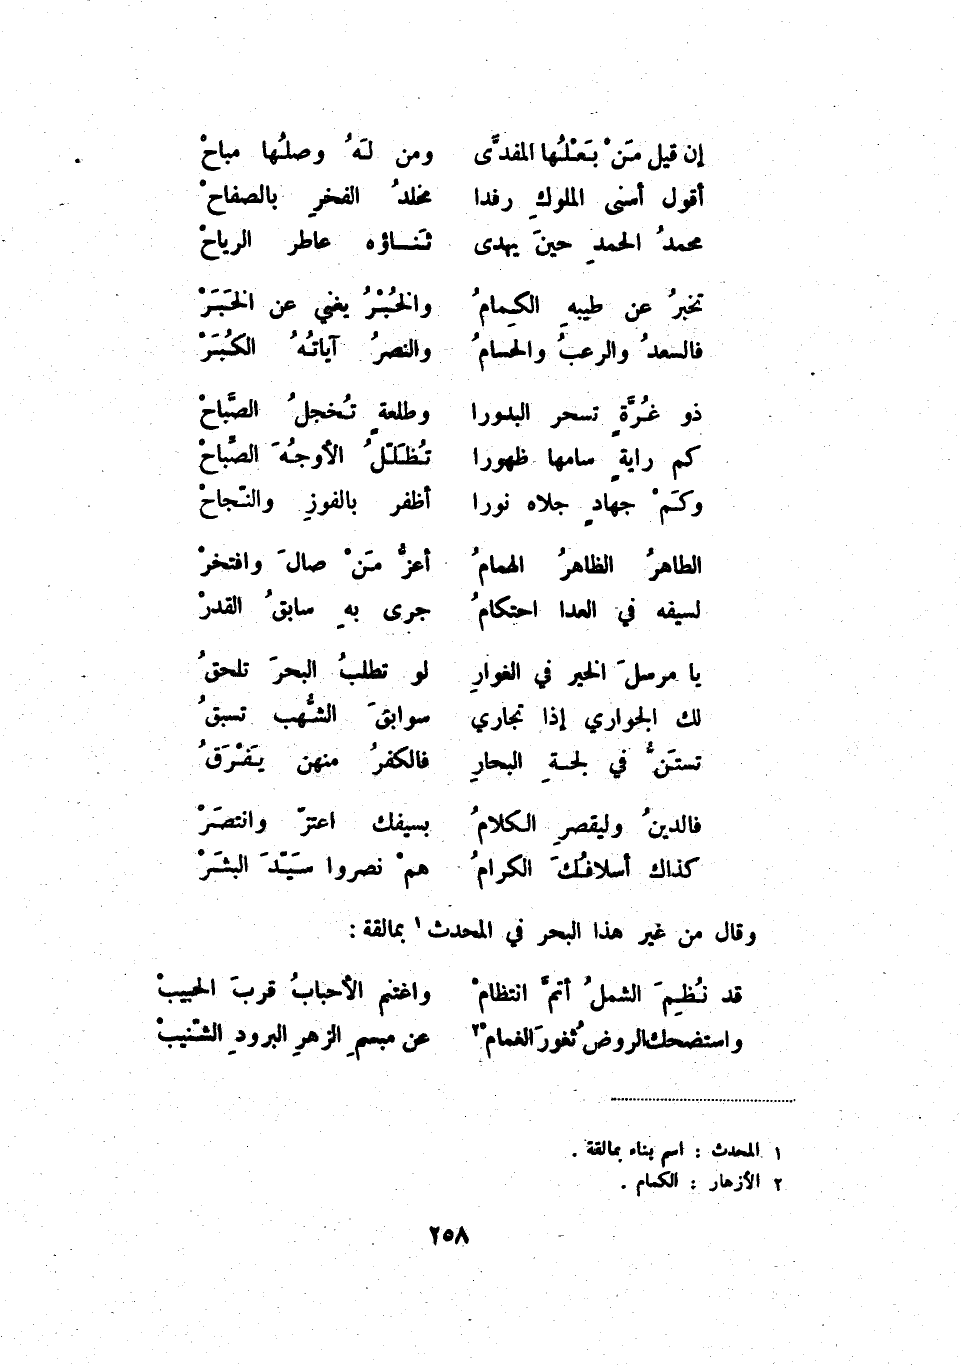 إن قيل مَنْ بَعْلُها المفدَّى ومن لَهُ وصلُها مباحْ
أقول أسنى الملوكِ رفدا مخلدُ الفخرِ بالصفاحْ
محمدُ الحمدِ حينَ يهدى ثَنــاؤه عاطر الرياحْ
تخبرُ عن طيبهِ الكِمامُ والخُبْرُ يغني عن الخَبَرْ
فالسعدُ والرعبُ والحسامُ والنصرُ آياتُهُ الكُبَرْ
ذو غُرَّةٍ تسحر البدورا وطلعةٍ تُخجلُ الصَّباحْ
كم رايةٍ سامها ظهورا تُظَلّلُ الأوجُهَ الصَّباحْ
وكَمْ جهادٍ جلاه نورا أظفر بالفوزِ والنّجاحْ
الطاهرُ الظاهرُ الهمامُ أعزُّ مَنْ صالَ وافتخرْ
لسيفه في العدا احتكامُ جرى بهِ سابقُ القدرْ
يا مرسلَ الخير في الغوارِ لو تطلبُ البحرَ تلحقُ
لك الجواري إذا تجاري سوابقَ الشُّهب تسبقُ
تستَنُّ في لجــةِ البحارِ فالكفرُ منهن يَفْرَقُ
فالدينُ وليقصرِ الكلامُ بسيفك اعتزّ وانتصَرْ
كذاك أسلافُكَ الكرامُ همْ نصروا سَيّدَ البشَرْ
وقال من غير هذا البحر في المحدث١ بمالقة :
قد نُظِمَ الشملُ أتمَّ انتظامْ واغتنم الأحبابُ قربَ الحبيبْ
واستضحك الروضُ ثغورَ الغمامْ٢ عن مبسمِ الزهرِ البرودِ الشّنيبْ
١ المحدث : اسم بناء بمالقة .
٢ الأزهار : الكمام .
٢٥٨